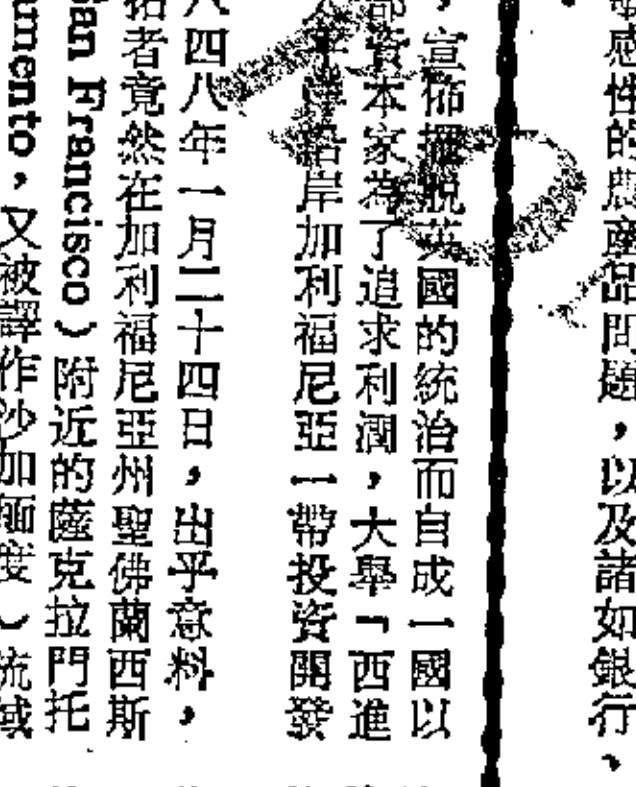 感性的農產品問題，以及諸如銀行、
，宣佈擺脫英國的統治而自成一國以
資本家為了追求利潤，大舉「西進
岸加利福尼亞一帶投資開發
八四八年一月二十四日，出乎意料，
拓者竟然在加利福尼亞州聖佛蘭西斯
San Francisco）附近的薩克拉門托
umento，又被譯作沙加緬度）流域